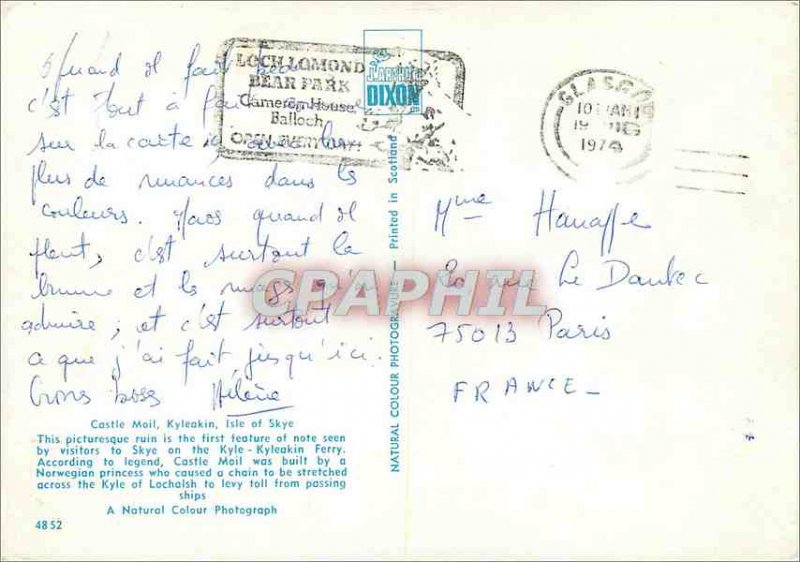 Quand il fait beau
c'est tout à fait
sur la carte
plus de nuances dans les
couleurs. Mais quand il
pleut, c'est surtout la
brume et les nuages qu'on
admire ; et c'est surtout
ce que j'ai fait jusqu'ici.
Gros bises Hélène
Castle Moil, Kyleakin, Isle of Skye
This picturesque ruin is the first feature of note seen
by visitors to Skye on the Kyle - Kyleakin Ferry.
According to legend, Castle Moil was built by a
Norwegian princess who caused a chain to be stretched
across the Kyle of Lochalsh to levy toll from passing
ships
A Natural Colour Photograph
4852
LOCH LOMOND
BEAR PARK
Cameron House
Balloch
OPEN
J. ARTHUR
DIXON
NATURAL COLOUR PHOTOGRAVURE — Printed in Scotland
GLASGOW
10 AM
19
1974
Mme
rue Le Dantec
75013 Paris
FRANCE -
CPAPHIL